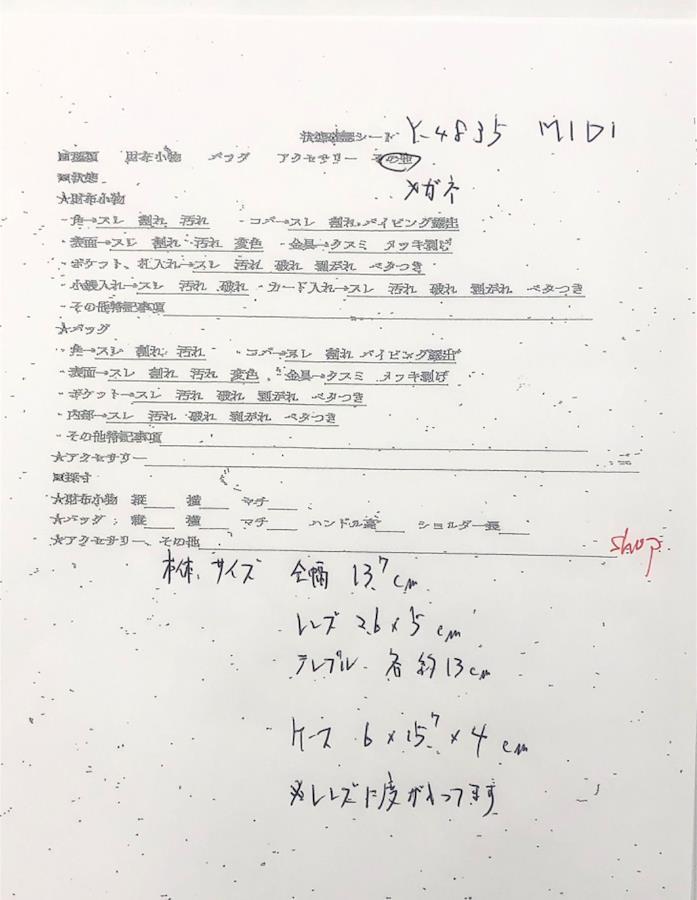 状態確認シート Y-4835 MIDI
■種類 財布小物 バッグ アクセサリー その他
■状態 メガネ
★財布小物
・角→スレ 割れ 汚れ ・コバ→スレ 割れ パイピング露出
・表面→スレ 割れ 汚れ 変色 ・金具→クスミ メッキ剥げ
・ポケット、札入れ→スレ 汚れ 破れ 剥がれ ベタつき
・小銭入れ→スレ 汚れ 破れ ・カード入れ→スレ 汚れ 破れ 剥がれ ベタつき
・その他特記事項
★バッグ
・角→スレ 割れ 汚れ ・コバ→スレ 割れ パイピング露出
・表面→スレ 割れ 汚れ 変色 ・金具→クスミ メッキ剥げ
・ポケット→スレ 汚れ 破れ 剥がれ ベタつき
・内部→スレ 汚れ 破れ 剥がれ ベタつき
・その他特記事項
★アクセサリー
■採寸
★財布小物 縦 横 マチ
★バッグ 縦 横 マチ ハンドル高 ショルダー長
★アクセサリー、その他 shop
本体、サイズ 全幅 13.7cm
レンズ 3.6×5cm
テンプル 各約13cm
ケース 6×15.7×4cm
※レンズに度が入ってます